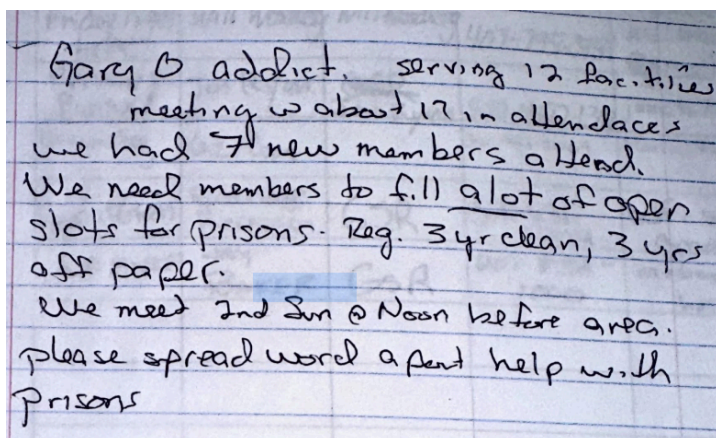 Gary O addict. serving 12 facilities
meeting w about 12 in attendaces
we had 7 new members attend.
We need members to fill alot of open
slots for prisons. Req. 3 yr clean, 3 yrs
off paper.
We meet 2nd Sun @ Noon before area.
please spread word apout help with
prisons